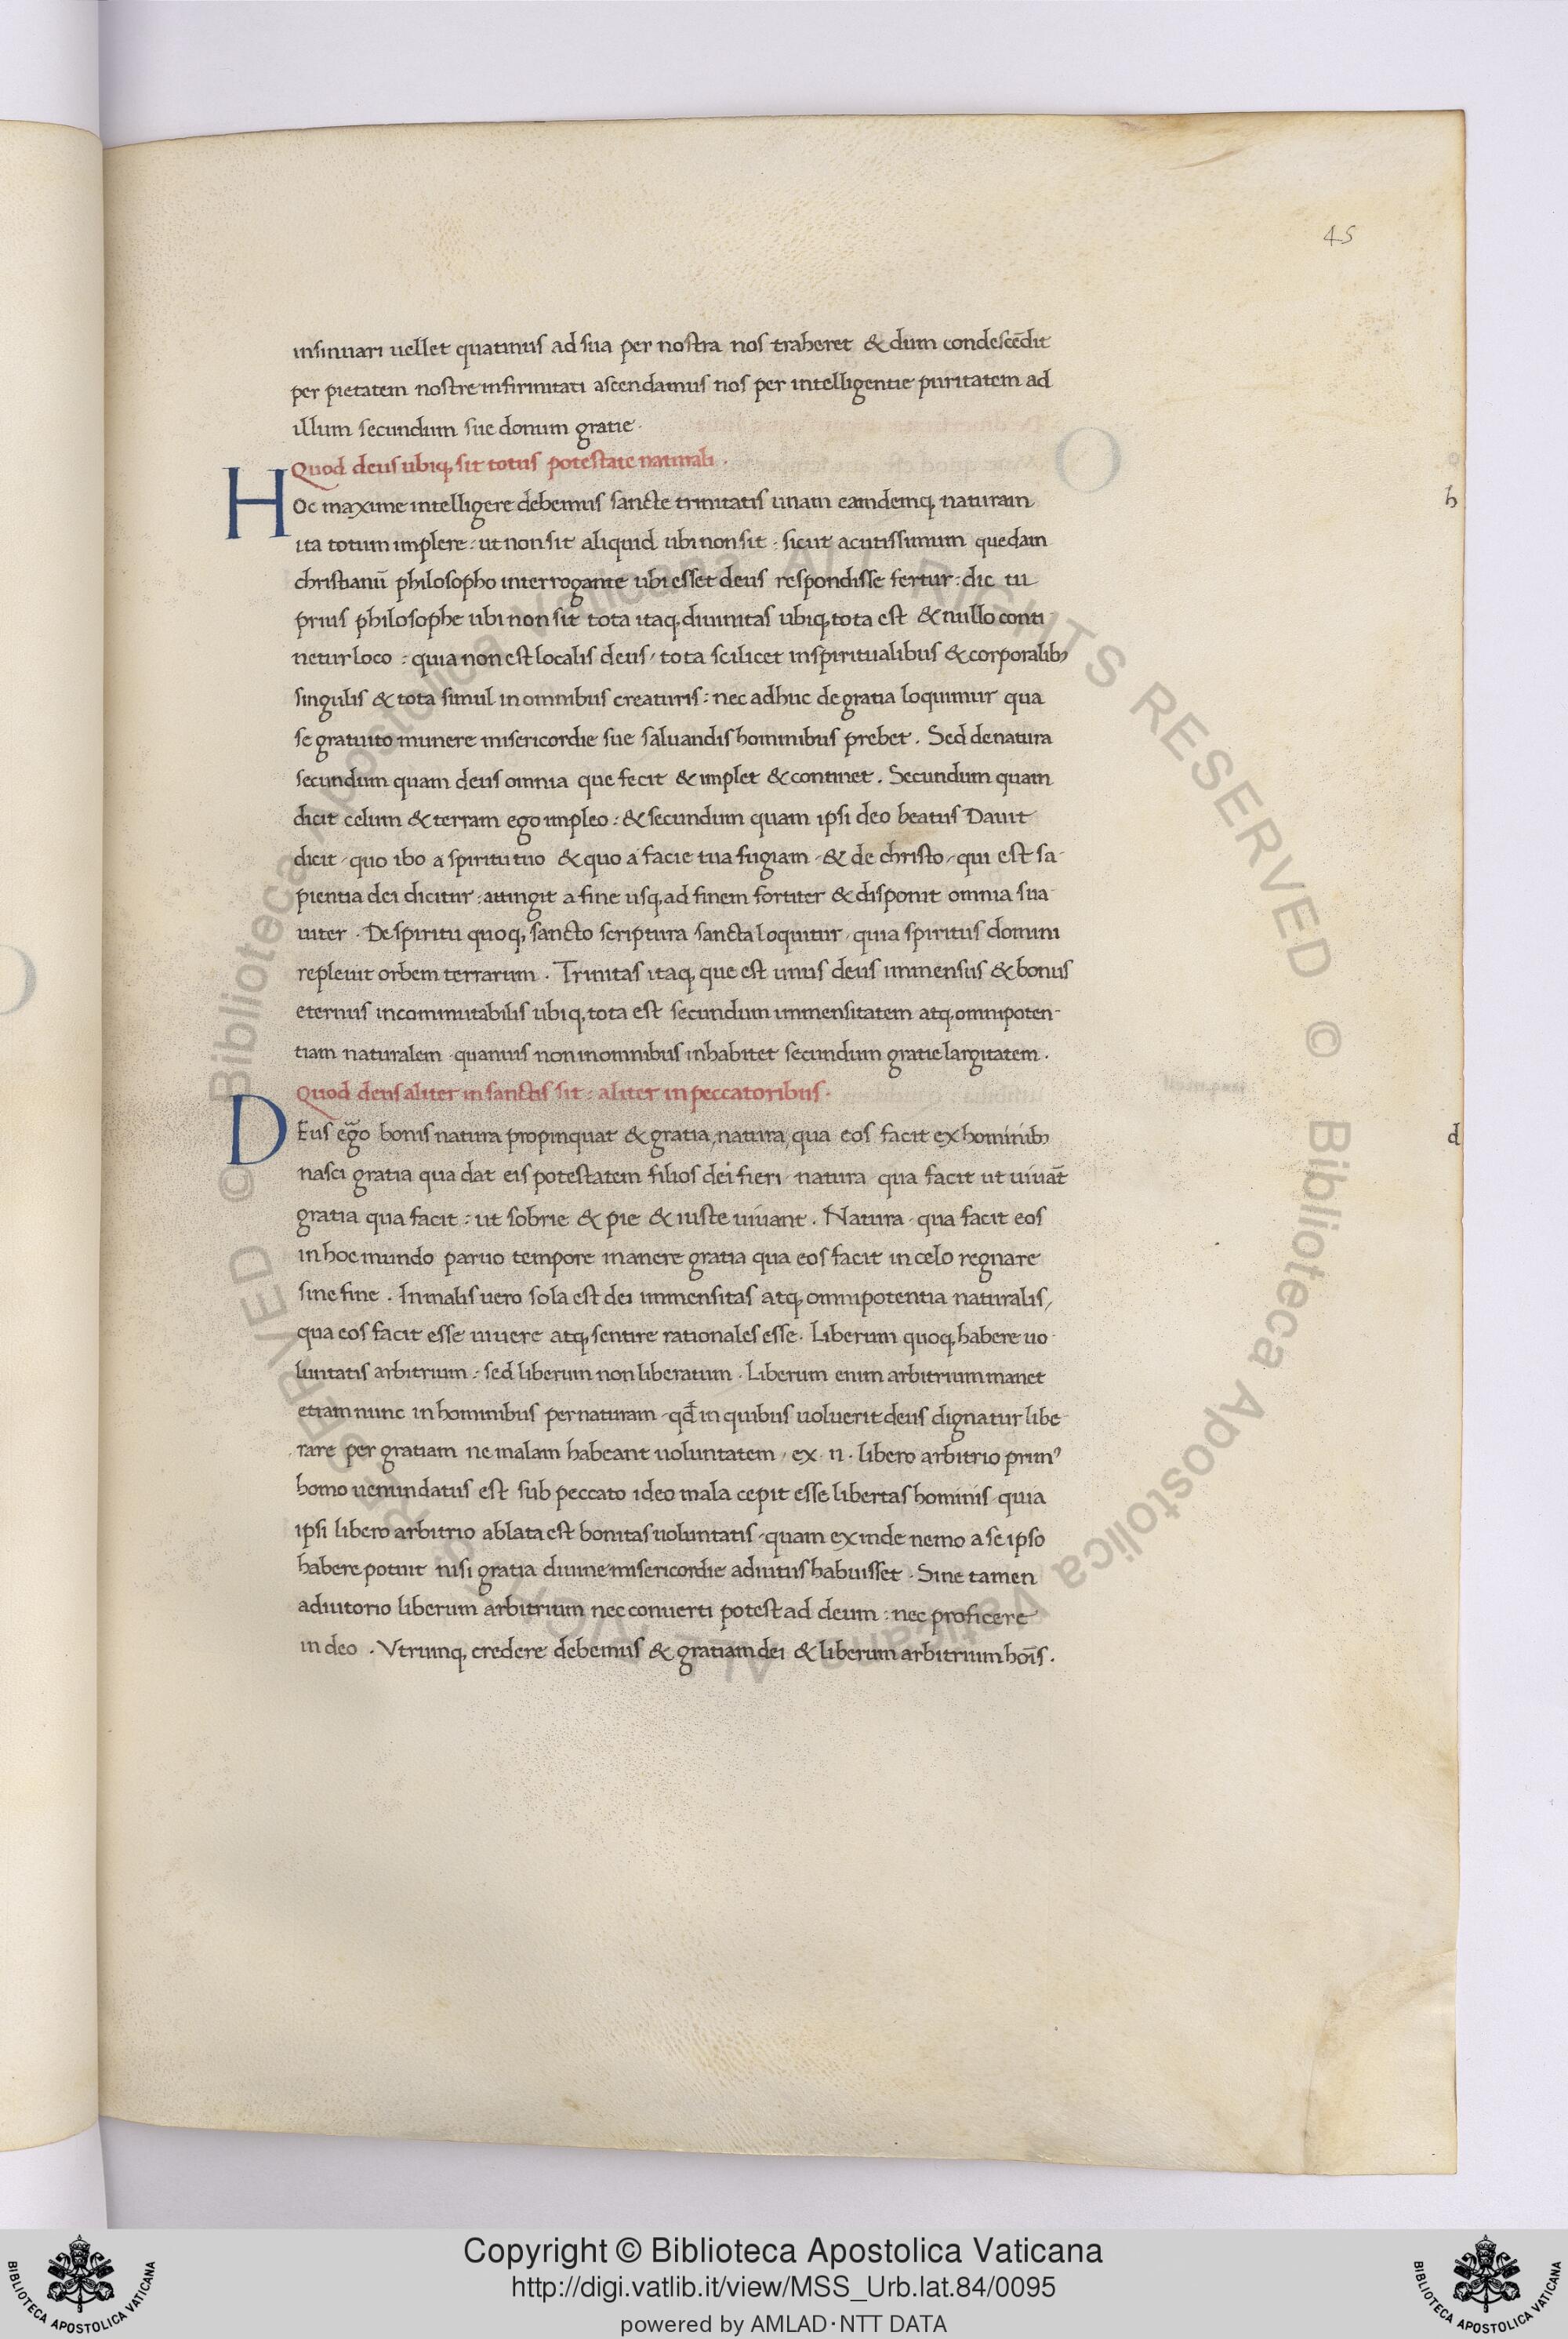 45
insinuari uellet quatinus ad sua per nostra nos traheret & dum condescēdit
per pietatem nostre infirmitati ascendamus nos per intelligentie puritatem ad
illum secundum sue donum gratie.
Quod deus ubiq; sit totus potestate naturali.
HOc maxime intelligere debemus sancte trinitatis unam eamdemq; naturam
ita totum implere: ut non sit aliquid ubi non sit: sicut acutissimum quedam
christianū philosopho interrogante ubi esset deus respondisse fertur: dic tu
prius philosophe ubi non sit tota itaq; diuinitas ubiq; tota est & nullo conti
netur loco: quia non est localis deus, tota scilicet in spiritualibus & corporalib;
singulis & tota simul in omnibus creaturis: nec adhuc de gratia loquimur qua
se gratuito munere misericordie sue saluandis hominibus prebet. Sed de natura
secundum quam deus omnia que fecit & implet & continet. Secundum quam
dicit celum & terram ego impleo: & secundum quam ipsi deo beatus Dauit
dicit, quo ibo a spiritu tuo & quo a facie tua fugiam, & de christo, qui est sa-
pientia dei dicitur: attingit a fine usq; ad finem fortiter & disponit omnia sua-
uiter. De spiritu quoq; sancto scriptura sancta loquitur, quia spiritus domini
repleuit orbem terrarum. Trinitas itaq; que est unus deus immensus & bonus
eternus incommutabilis ubiq; tota est secundum immensitatem atq; omnipoten-
tiam naturalem, quamuis non in omnibus inhabitet secundum gratie largitatem.
Quod deus aliter in sanctis sit: aliter in peccatoribus.
DEus ego bonis natura propinquat & gratia, natura, qua eos facit ex hominib;
nasci gratia qua dat eis potestatem filios dei fieri, natura qua facit ut uiuāt
gratia qua facit: ut sobrie & pie & iuste uiuant. Natura, qua facit eos
in hoc mundo paruo tempore manere gratia qua eos facit in celo regnare
sine fine. In malis uero sola est dei immensitas atq; omnipotentia naturalis,
qua eos facit esse uiuere atq; sentire rationales esse. Liberum quoq; habere uo-
luntatis arbitrium: sed liberum non liberatum. Liberum enim arbitrium manet
etiam nunc in hominibus per naturam, qđ in quibus uoluerit deus dignatur libe-
rare per gratiam ne malam habeant uoluntatem, ex. n. libero arbitrio prim⁹
homo uenundatus est sub peccato ideo mala cepit esse libertas hominis, quia
ipsi libero arbitrio ablata est bonitas uoluntatis, quam ex inde nemo a se ipso
habere potuit nisi gratia diuine misericordie adiutus habuisset. Sine tamen
adiutorio liberum arbitrium nec conuerti potest ad deum: nec proficere
in deo. Vtrumq; credere debemus & gratiam dei & liberum arbitrium hoīs.
h
d
Copyright © Biblioteca Apostolica Vaticana
http://digi.vatlib.it/view/MSS_Urb.lat.84/0095
powered by AMLAD·NTT DATA
BIBLIOTECA APOSTOLICA VATICANA
BIBLIOTECA APOSTOLICA VATICANA
© Biblioteca Apostolica Vaticana ALL RIGHTS RESERVED © Biblioteca Apostolica Vaticana ALL RIGHTS RESERVED